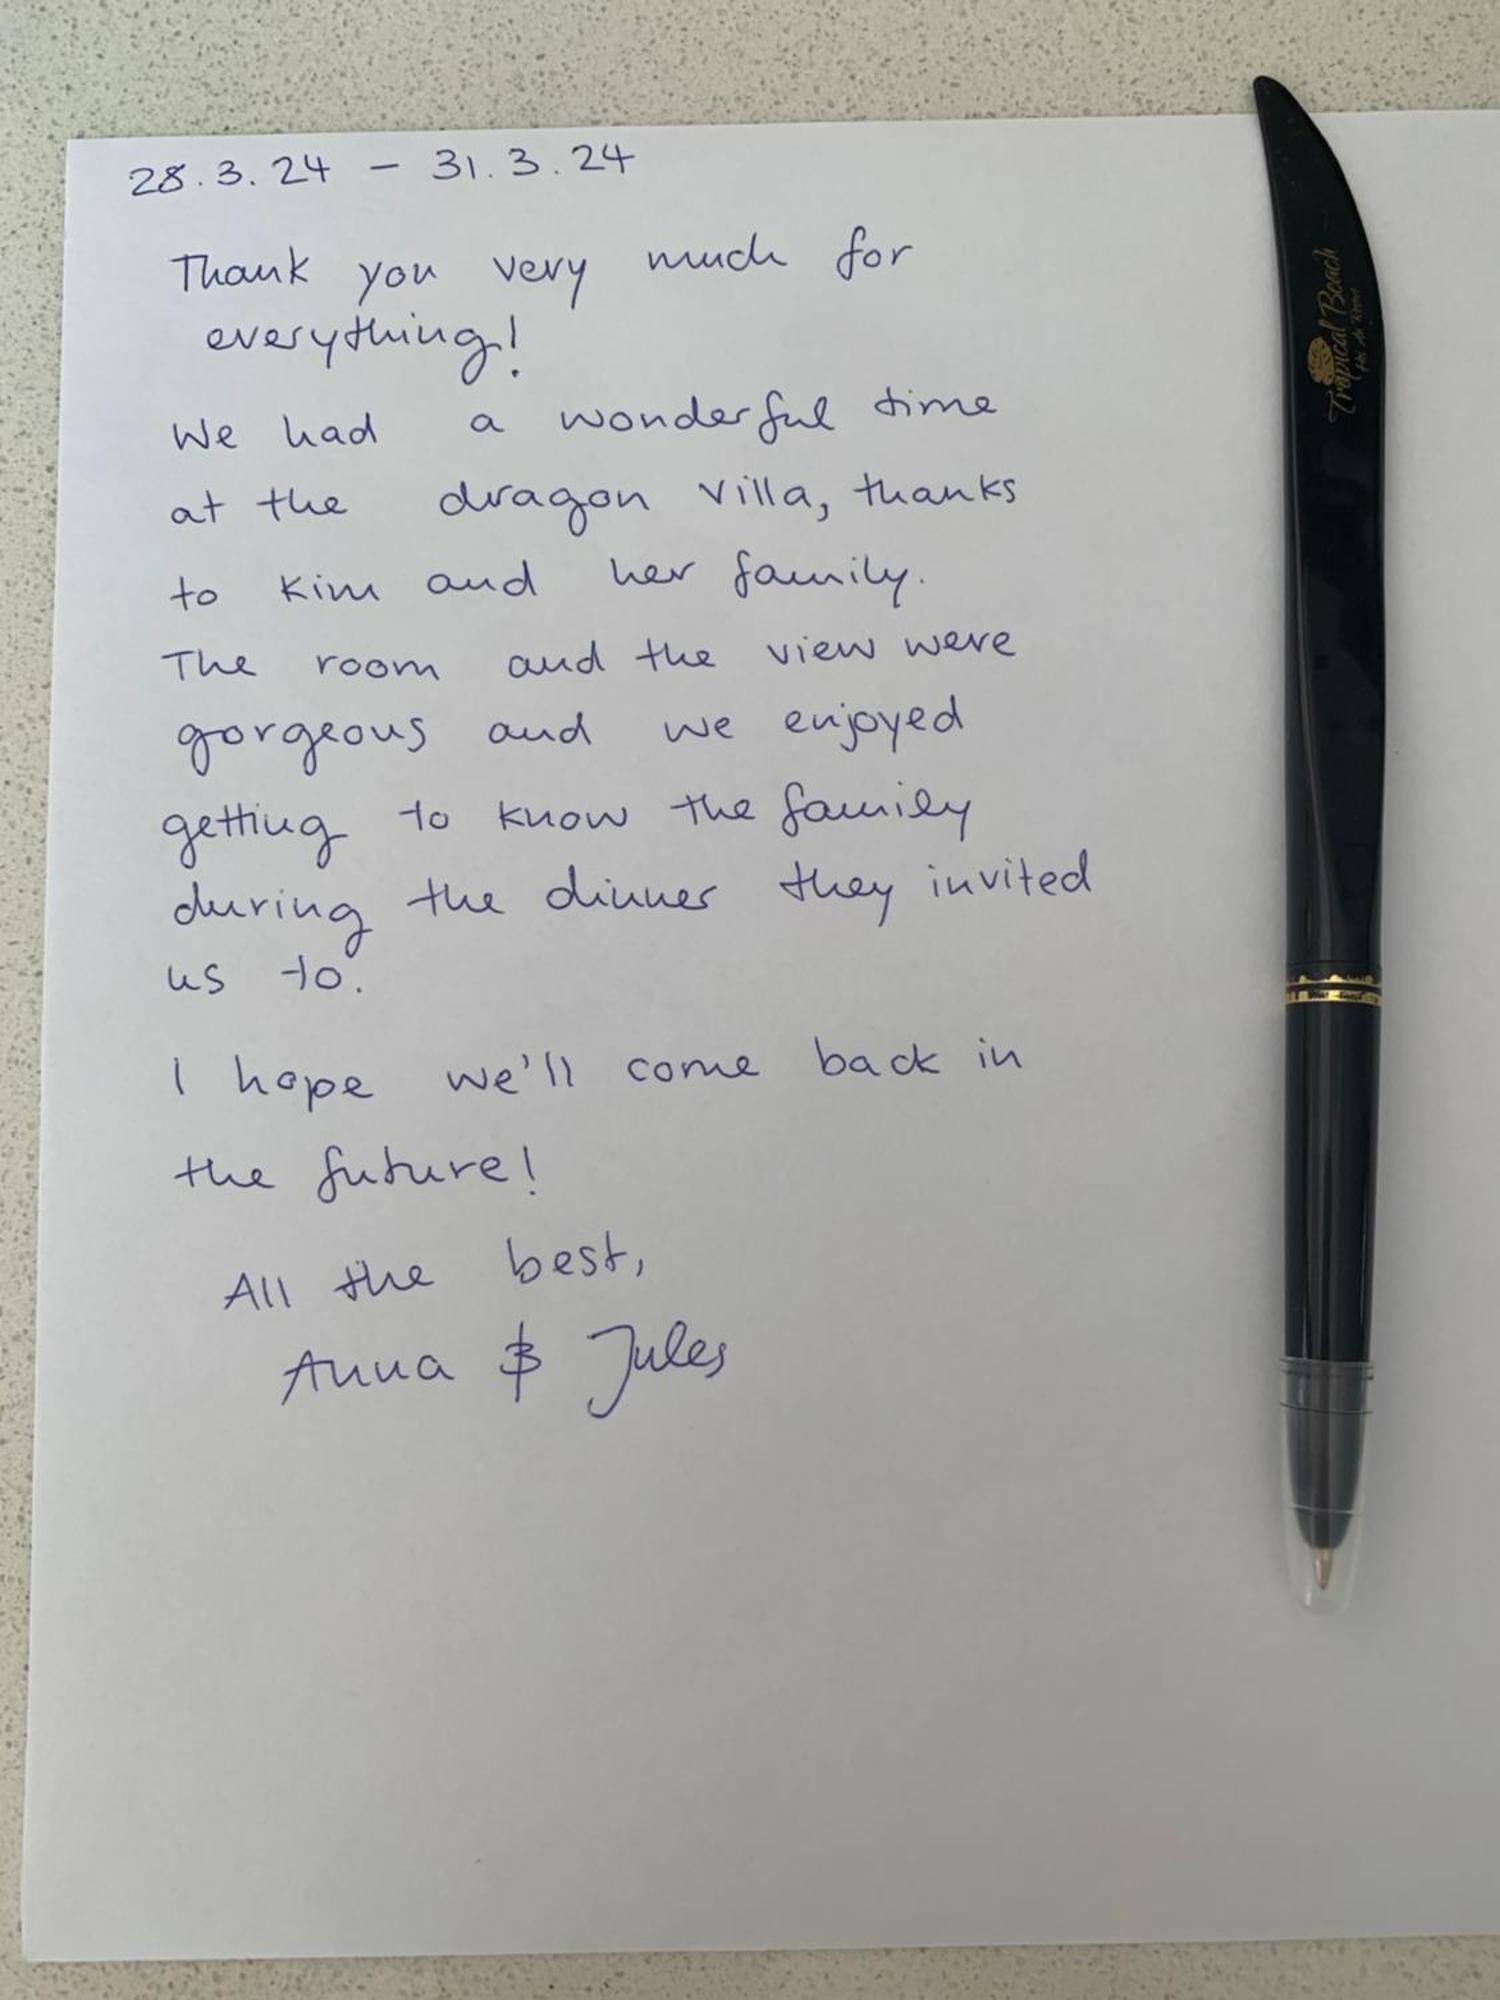 28.3.24 - 31.3.24
Thank you very much for
everything!
We had a wonderful time
at the dragon villa, thanks
to Kim and her family.
The room and the view were
gorgeous and we enjoyed
getting to know the family
during the dinner they invited
us to.
I hope we'll come back in
the future!
All the best,
Anna & Jules
Tropical Beach
Hoi An Resort